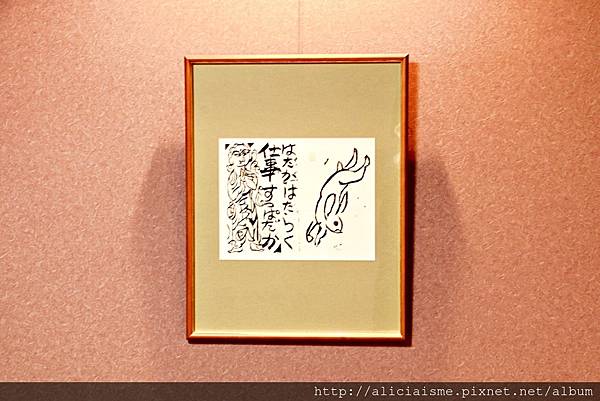 はだかはたらく
仕事すっぱだか
http://aliciaisme.pixnet.net/album